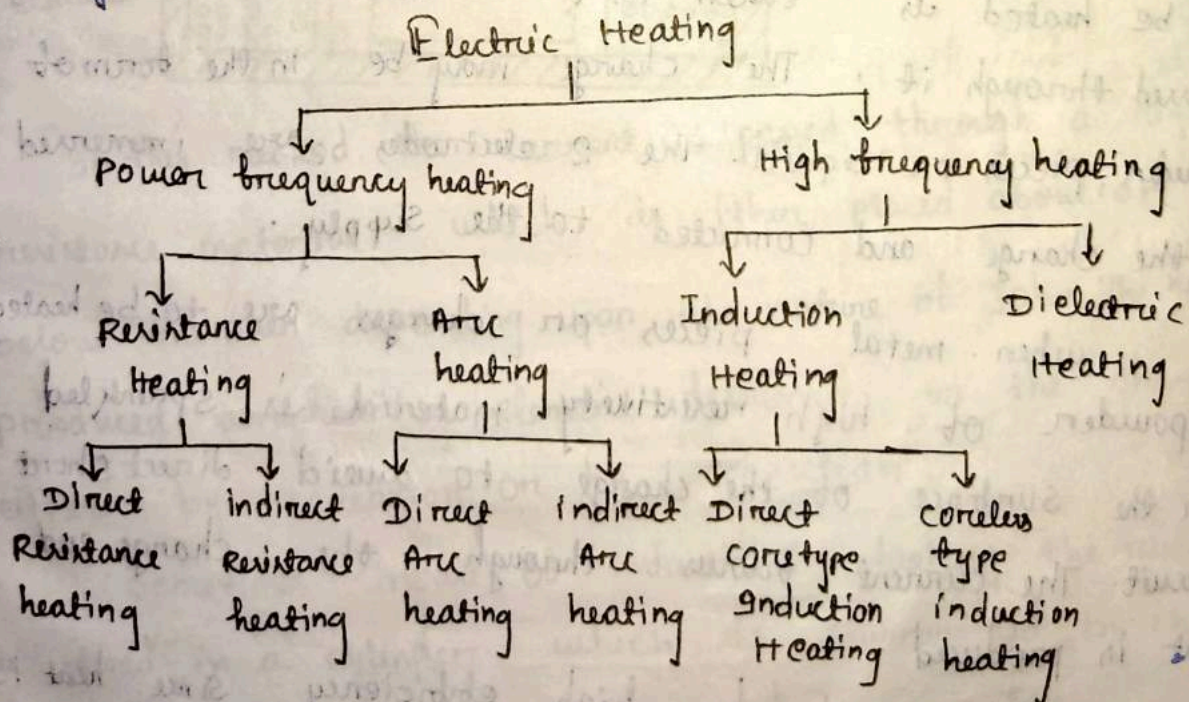 Electric Heating
Power frequency heating
High frequency heating
Resistance
Heating
Arc
heating
Induction
Heating
Dielectric
Heating
Direct
Resistance
heating
indirect
Resistance
heating
Direct
Arc
heating
indirect
Arc
heating
Direct
core type
Induction
Heating
coreless
type
induction
heating